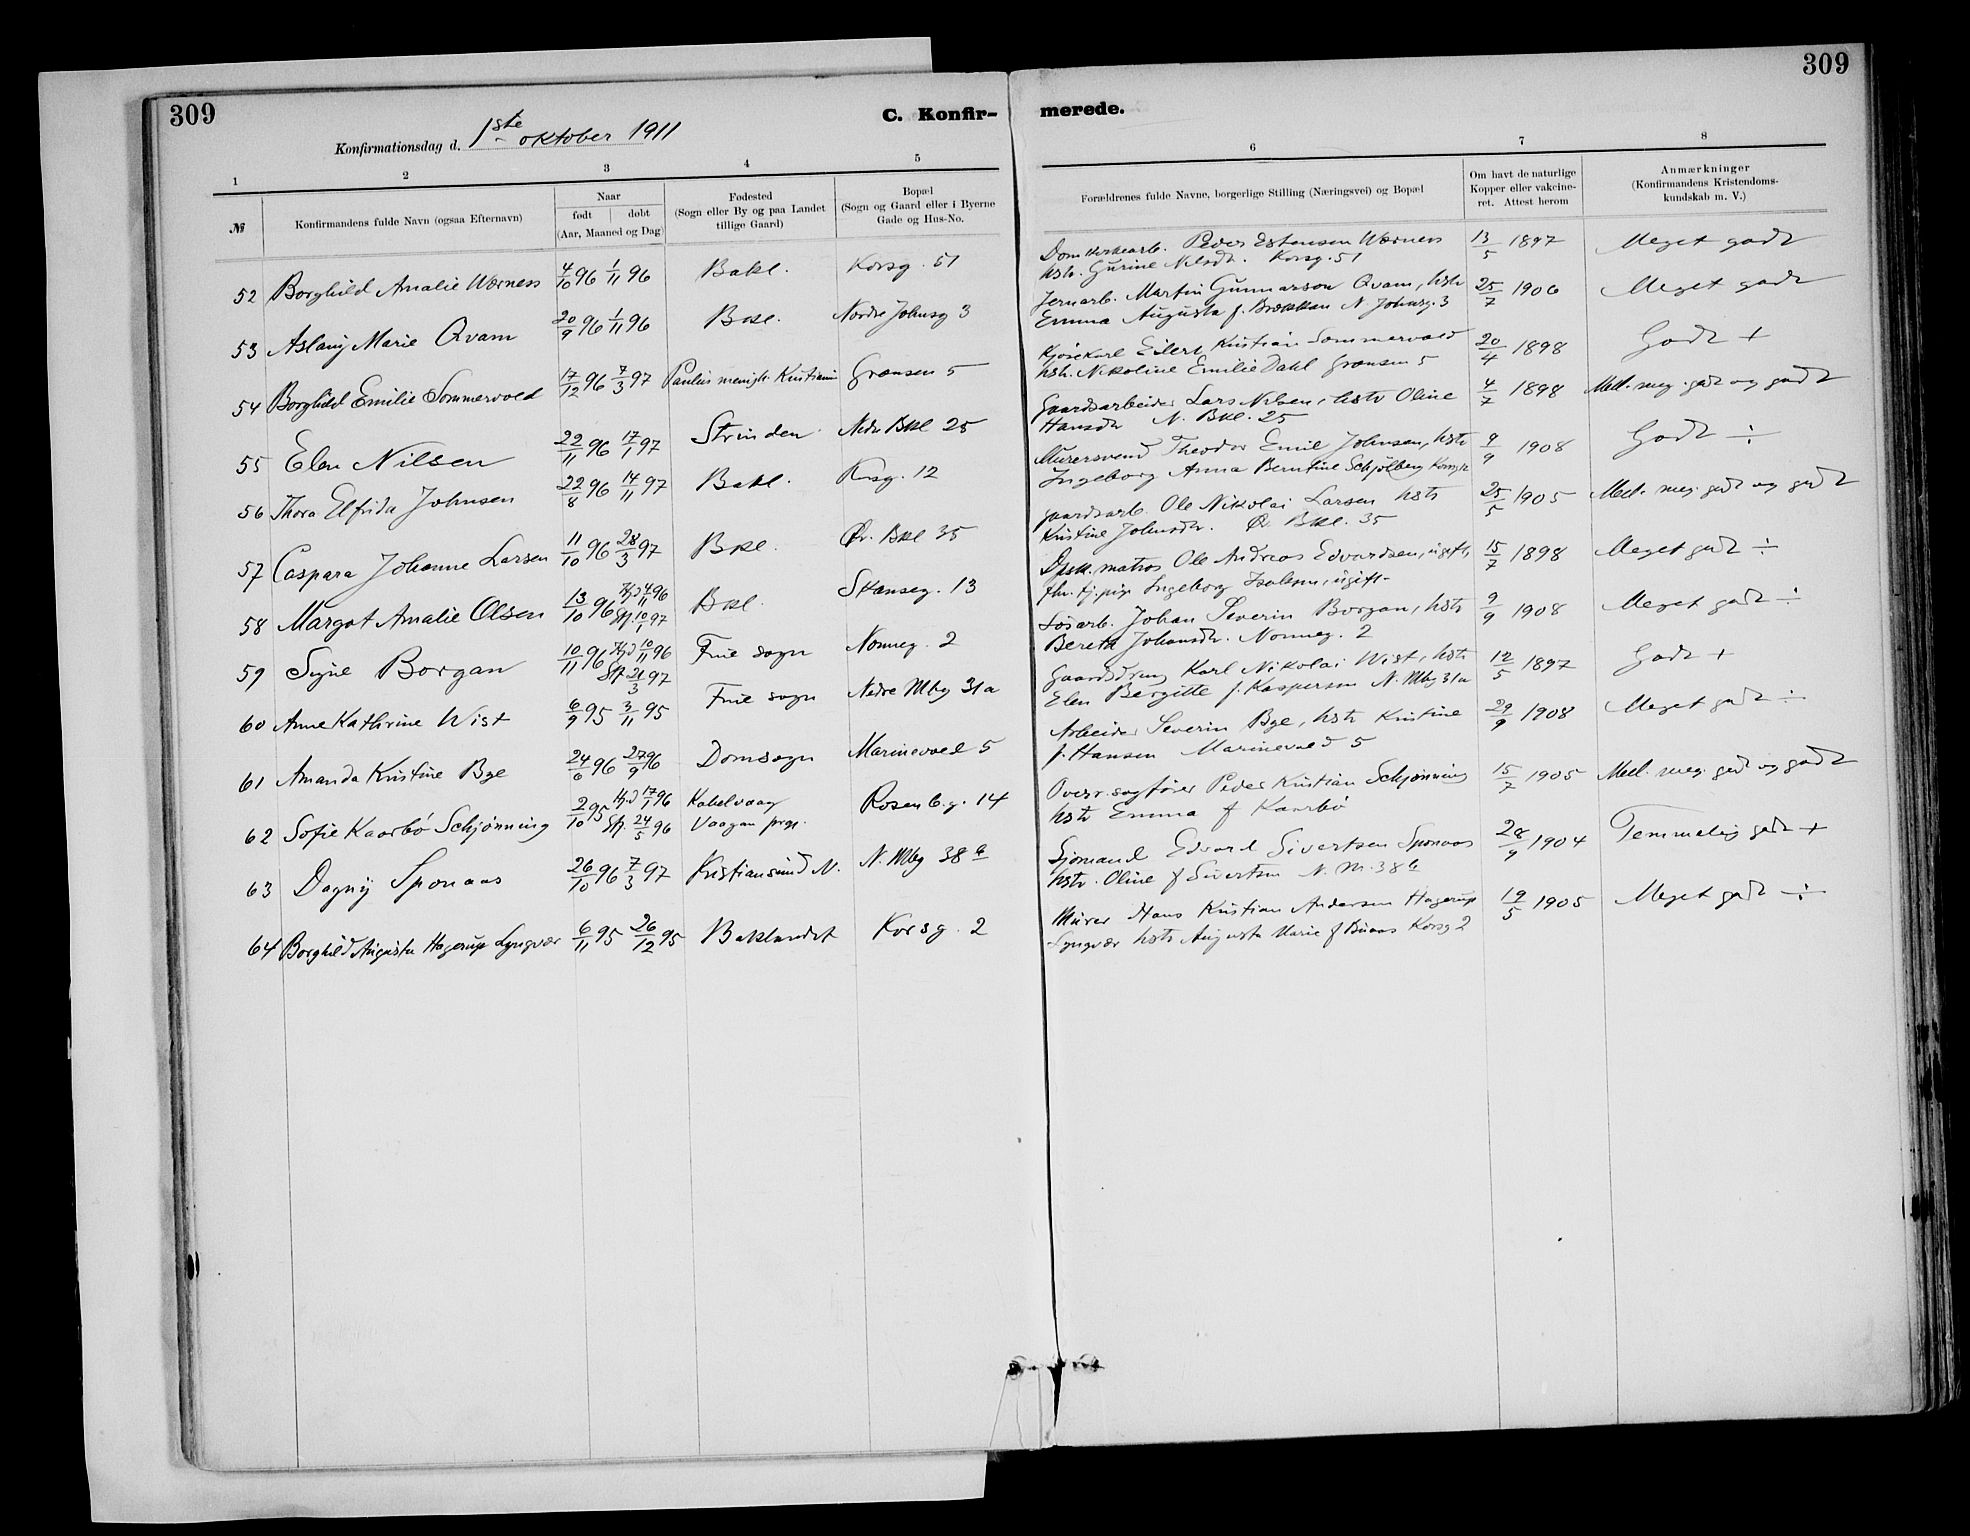 309
C. Konfir-
merede.
309
Konfirmationsdag d. 1ste oktober 1911
1 2 3 4 5 6 7 8
№
Konfirmandens fulde Navn (ogsaa Efternavn)
Naar
født døbt
(Aar, Maaned og Dag)
Fødested
(Sogn eller By og paa Landet
tillige Gaard)
Bopæl
(Sogn og Gaard eller i Byerne
Gade og Hus-No.
Forældrenes fulde Navne, borgerlige Stilling (Næringsvei) og Bopæl
Om havt de naturlige
Kopper eller vakcine-
ret. Attest herom
Anmærkninger
(Konfirmandens Kristendoms-
kundskab m. V.)
52 Borghild Amalie Værness 4/10 96 1/11 96 Bakl. Korsg. 51
Domkirkearb. Peder Estensen Værness 13/5 1897 Meget godt
hstr. Gurine Nilsdr. Korsg. 51
53 Aslaug Marie Qvam 20/9 96 1/11 96 Bkl. Nordre Johnsg 3
Jernarb. Martin Gunnarson Qvam, hstr 25/7 1906 Meget godt
Emma Augusta f. Brækkan N. Johnsg. 3
54 Borghild Emilie Sommervold 17/12 96 7/3 97 Paulus menigh. Kristiania Grænsen 5
Kjørekarl Eilert Kristian Sommervold 20/4 1898 Godt +
hstr. Nikoline Emilie Dahl Grænsen 5
55 Elen Nilsen 22/11 96 17/1 97 Strinden Nedr Bkl 25
Gaardsarbeider Lars Nilsen, hstr Oline 4/7 1898 Mell. meg. godt og godt
Hansdr N. Bkl. 25
56 Thora Elfrida Johnsen 22/8 96 14/11 97 Bakl. Krsg. 12
Murersvend Theodor Emil Johnsen, hstr 9/9 1908 Godt ÷
Ingeborg Anna Berntine Schjølberg Korsg 12
57 Caspara Johanne Larsen 11/10 96 28/3 97 Bkl. Ør. Bkl 35
gaardsarb. Ole Nikolai Larsen hstr 25/5 1905 Mell. meg. godt og godt
Kristine Johnsdr. Ø. Bkl. 35
58 Margot Amalie Olsen 13/10 96 Hjd 4/11 96 Bkl. Skanseg. 13
Stf. 10/1 97
Dpsk. matros Ole Andreas Edvardsen, ugift, 15/7 1898 Meget godt ÷
fhv. tj. pige Ingeborg Isaksen, ugift.
59 Signe Borgan 10/11 96 Hjd 10/11 96 Frue sogn Nonneg. 2
Stf 21/3 97
Løsarb. Johan Severin Borgan, hstr 9/9 1908 Meget godt ÷
Bereth Johansdr. Nonneg. 2
60 Anne Kathrine Wist 6/9 95 3/11 95 Frue sogn Nedre Mbg 31a
Gaardsdreng Karl Nikolai Wist, hstr 12/5 1897 Godt +
Elen Bergitte f. Kaspersen N. Mbg 31a
61 Amanda Kristine Bye 24/6 96 27/9 96 Domsogn Marinevold 5
Arbeider Severin Bye, hstr Kristine 29/9 1908 Meget godt ÷
f. Hansen Marinevold 5
62 Sofie Kaarbø Schjønning 2/10 95 Hjd 17/1 96 Kabelvaag Rosenb.g. 14
Stf. 24/5 96 Vaagan prgj.
Overr.sagfører Peder Kristian Schjønning 15/7 1905 Mell. meg. godt og godt
hstr Emma f Kaarbø
63 Dagny Sponaas 26/10 96 7/3 97 Kristiansund N. N. Mbg 38a
Sjømand Edvard Sivertsen Sponaas 28/9 1904 Temmelig godt +
hstr. Oline f Sivertsen N. M. 38a
64 Borghild Augusta Hagerup Lyngvær 6/11 95 26/12 95 Baklandet Korsg. 2
Murer Hans Kristian Andersen Hagerup 19/5 1905 Meget godt ÷
Lyngvær hstr Augusta Marie f Buaas Korsg 2